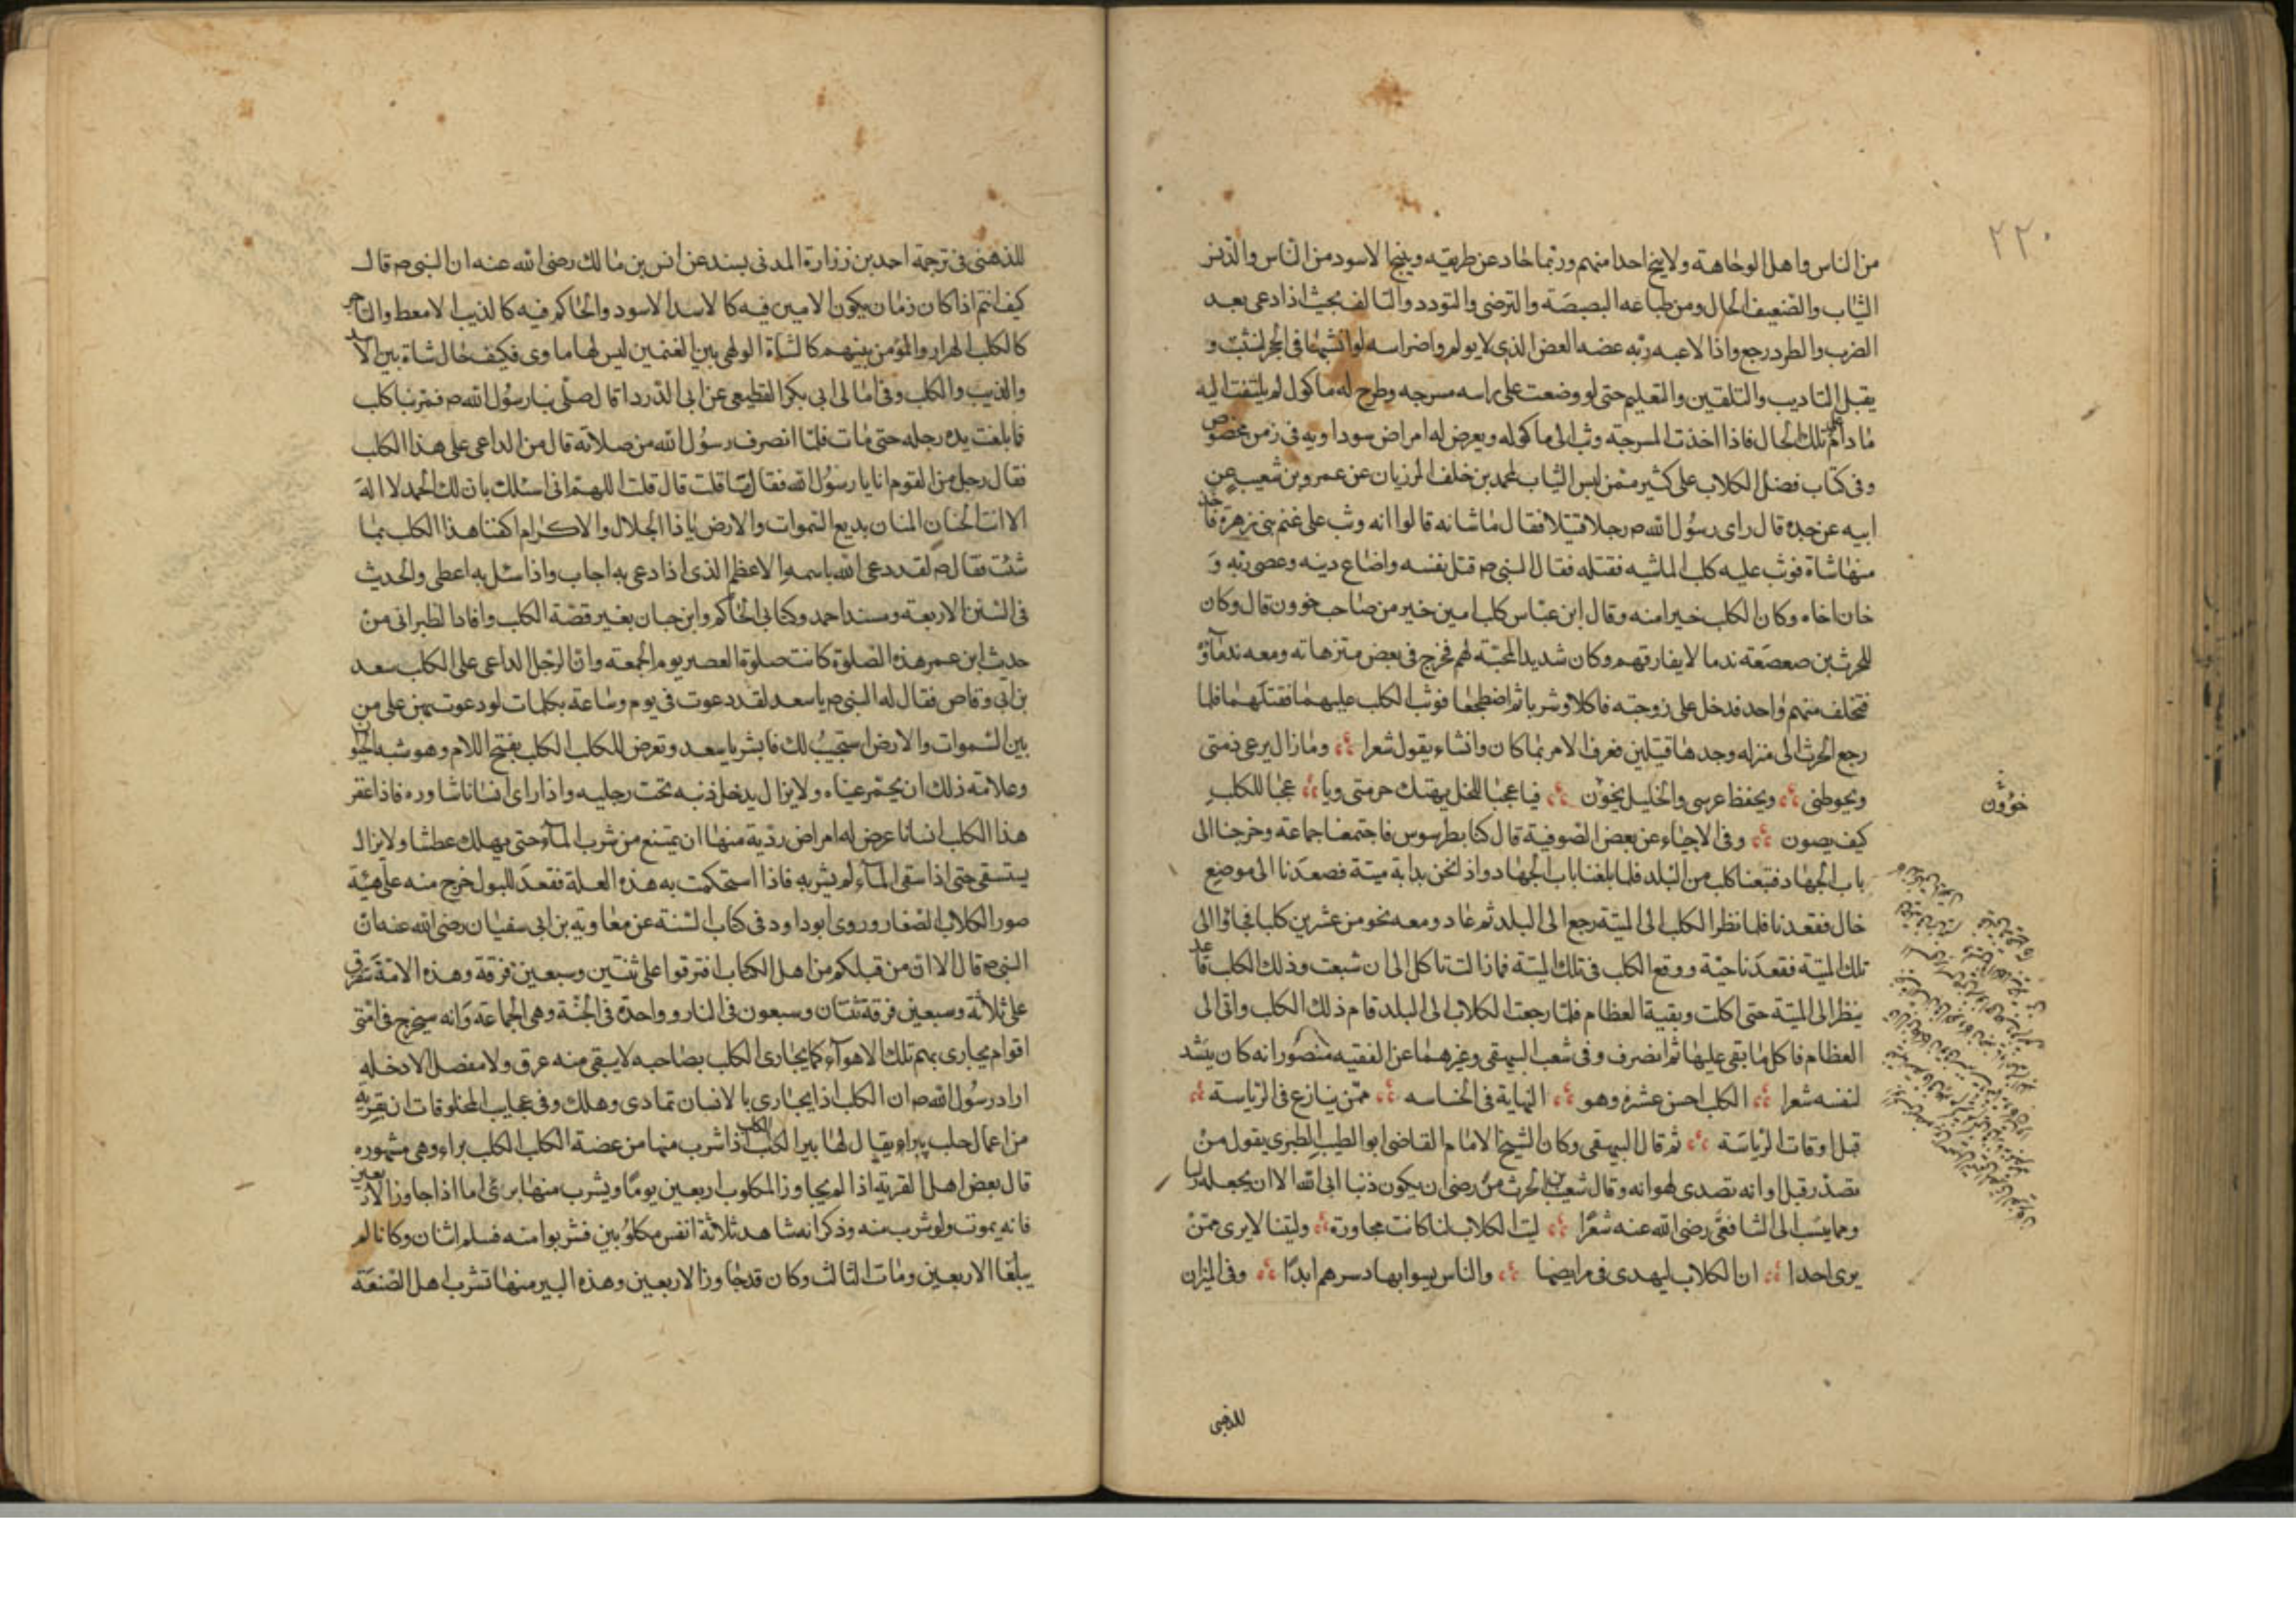 ٢٢٠
من الناس واهل الوجاهة ولا ينبح احدا منهم وربما حاد عن طريقه وينبح الاسود من الناس والدنس
الثياب والضعيف الحال ومن طباعه البصبصة والترضى والتودد والتالف بحيث اذا دعى بعد
الضرب والطرد رجع واذا لاعبه ربه عضه العض الذى لا يولم واضراسه لو انشبها فى الحجر لنشبت و
يقبل التاديب والتلقين والتعليم حتى لو وضعت على راسه مسرجه وطرح له ماكول لم يلتفت اليه
ما دام على تلك الحال فاذا اخذت المسرجة وثب الى ماكوله ويعرض له امراض سوداوية فى زمن مخصوص
وفى كتاب فضل الكلاب على كثير ممن لبس الثياب لمحمد بن خلف المرزبان عن عمرو بن شعيب عن
ابيه عن جده قال راى رسول الله ص رجلا قتيلا فقال ما شانه قالوا انه وثب على غنم بنى زهرة فاخذ
منها شاة فوثب عليه كلب الماشيه فقتله فقال النبى ص قتل نفسه واضاع دينه وعصى ربه و
خان اخاه وكان الكلب خيرا منه وقال ابن عباس كلب امين خير من صاحب خوون قال وكان
للحرث بن صعصعة ندما لا يفارقهم وكان شديد المحبة لهم فخرج فى بعض متنزهاته ومعه ندماؤه
فتخلف منهم واحد فدخل على زوجته فاكلا وشربا ثم اضطجعا فوثب الكلب عليهما فقتلهما فلما
رجع الحرث الى منزله وجدهما قتيلين فعرف الامر بما كان وانشاء يقول شعرا وما زال يرعى ذمتى
ويحوطنى ويحفظ عرسى والخليل يخون فيا عجبا للخل يهتك حرمتى ويا عجبا للكلب
خوون
كيف يصون وفى الاحياء عن بعض الصوفية قال كنا بطرسوس فاجتمعنا جماعة وخرجنا الى
باب الجهاد فتبعنا كلب من البلد فلما بلغنا باب الجهاد واذا نحن بدابة ميتة فصعدنا الى موضع
خال فقعدنا فلما نظر الكلب الى الميتة رجع الى البلد ثم عاد ومعه نحو من عشرين كلبا فجاؤا الى
تلك الميتة فقعد ناحية ووقع الكلب فى تلك الميتة فما زالت تاكل الى ان شبعت وذلك الكلب قاعد
ينظر الى الميتة حتى اكلت وبقية العظام فلما رجعت الكلاب الى البلد قام ذلك الكلب واتى الى
العظام فاكل ما بقى عليها ثم انصرف وفى شعب البيهقى وغيرهما عن الفقيه منصور انه كان ينشد
لنفسه شعرا الكلب احسن عشرة وهو النهاية فى الخساسه ممن ينازع فى الرياسة
قبل اوقات الرياسة ثم قال البيهقى وكان الشيخ الامام القاضى ابو الطيب الطبرى يقول من
تصدر قبل اوانه تصدى لهوانه وقال شعيب بن الحرث من رضى ان يكون ذنبا ابى الله الا ان يجعله راسا
ومما ينسب الى الشافعى رضى الله عنه شعرا ليت الكلاب لنا كانت مجاورة وليتنا لا يرى ممن
يرى احدا ان الكلاب ليهدى فى مرابضها والناس ليسوا بهاد سرهم ابدا وفى الميزان
للذهبى
للذهبى فى ترجمة احمد بن زرارة المدنى بسند عن انس بن مالك رضى الله عنه ان النبى ص قال
كيف انتم اذا كان زمان يكون الامير فيه كالاسد الاسود والحاكم فيه كالذيب الامعط والتاجر
كالكلب الهرار والمؤمن بينهم كالشاة الولهى بين الغنمين ليس لها ماوى فكيف حال شاة بين الاسد
والذيب والكلب وفى امالى ابى بكر القطيعى عن ابى الدردا قال صلى بنا رسول الله ص فمر بنا كلب
فما بلغت يده رجله حتى مات فلما انصرف رسول الله من صلاته قال من الداعى على هذا الكلب
فقال رجل من القوم انا يا رسول الله فقال ما قلت قال قلت اللهم انى اسئلك بان لك الحمد لا اله
الا انت الحنان المنان بديع السموات والارض يا ذا الجلال والاكرام اكفنا هذا الكلب بما
شئت فقال ص لقد دعى الله باسمه الاعظم الذى اذا دعى به اجاب واذا سئل به اعطى والحديث
فى السنن الاربعة ومسند احمد وكتابى الحاكم وابن حبان بغير قصة الكلب وافاد الطبرانى من
حديث ابن عمر هذه الصلوة كانت صلوة العصر يوم الجمعة وان الرجل الداعى على الكلب سعد
بن ابى وقاص فقال له النبى ص يا سعد لقد دعوت فى يوم وساعة بكلمات لو دعوت بهن على من
بين السموات والارض استجيب لك فابشر يا سعد وتعرض للكلب الكلب بفتح اللام وهو شبه الجنون
وعلامة ذلك ان يحمر عيناه ولا يزال يدخل ذنبه تحت رجليه واذا راى انسانا شاوره فاذا عقر
هذا الكلب انسانا عرض له امراض ردية منها ان يمتنع من شرب الماء حتى يهلك عطشا ولا يزال
يستسقى حتى اذا سقى الماء لم يشربه فاذا استحكمت به هذه العلة فقعد للبول خرج منه على هيئة
صور الكلاب الصغار وروى ابو داود فى كتاب السنة عن معاوية بن ابى سفيان رضى الله عنه ان
النبى ص قال الا ان من قبلكم من اهل الكتاب افترقوا على ثنتين وسبعين فرقة وهذه الامة ستفرق
على ثلاثة وسبعين فرقة ثنتان وسبعون فى النار وواحدة فى الجنة وهى الجماعة وانه سيخرج فى امتى
اقوام يجارى بهم تلك الاهوآء كما يجارى الكلب بصاحبه لا يبقى منه عرق ولا مفصل الا دخله
اراد رسول الله ص ان الكلب اذا يجارى بالانسان تمادى وهلك وفى عجايب المخلوقات ان بقرية
من اعمال حلب بيراء يقال لها بير الكلب اذا شرب منها من عضه الكلب الكلب براء وهى مشهوره
قال بعض اهل القرية اذا لم يجاوز المكلوب اربعين يوما ويشرب منها برئ اما اذا جاوز الاربعين
فانه يموت ولو شرب منه وذكر انه شاهد ثلاثة انفس مكلوبين فشربوا منه فسلم اثنان وكانا لم
يبلغا الاربعين ومات الثالث وكان قد جاوز الاربعين وهذه البير منها تشرب اهل الضيعة